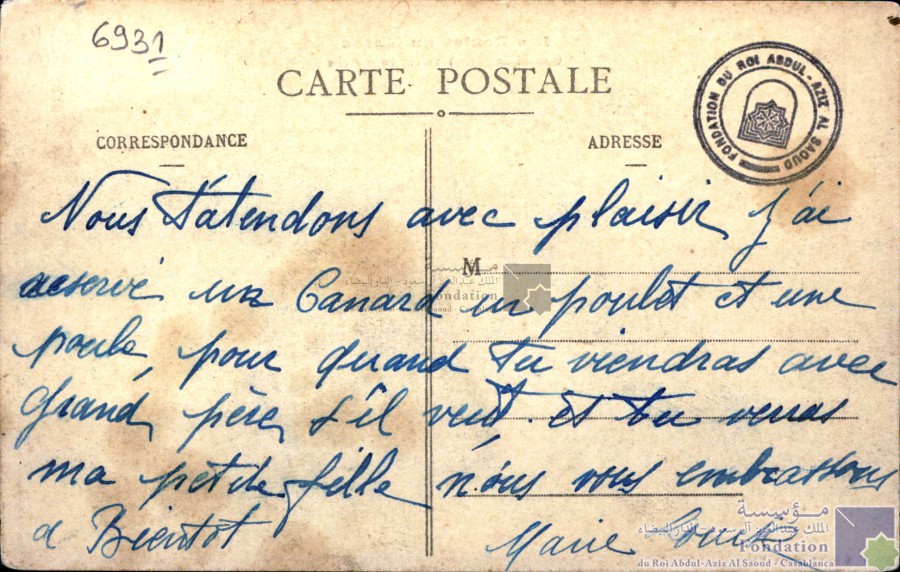 6931
CARTE POSTALE
FONDATION DU ROI ABDUL-AZIZ AL SAOUD
CORRESPONDANCE
ADRESSE
Nous t'atendons avec plaisir, j'ai
reservé un Canard un poulet et une
poule, pour quand tu viendras avec
Grand père s'il veut. et tu verras
ma petite fille nous vous embrassons
a Bientot
Marie Louise
M
مؤسسة
الملك عبد العزيز آل سعود - الدار البيضاء
Fondation
مؤسسة
الملك عبد العزيز آل سعود - الدار البيضاء
Fondation
du Roi Abdul-Aziz Al Saoud - Casablanca